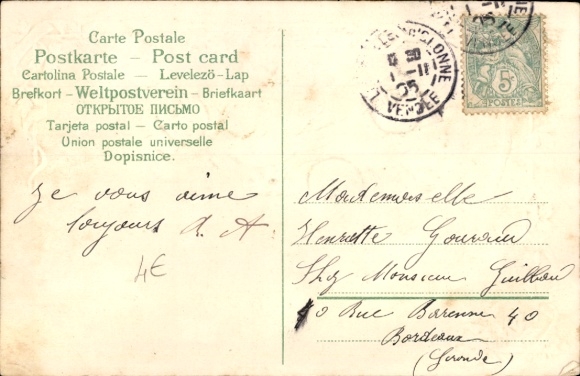 Carte Postale
Postkarte – Post card
Cartolina Postale – Levelező-Lap
Brefkort - Weltpostverein - Briefkaart
ОТКРЫТОЕ ПИСЬМО
Tarjeta postal – Carto postal
Union postale universelle
Dopisnice.
je vous aime
toujours A. A
4E
VENDÉE
5c
POSTES
Mademoiselle
Henriette
Chez Monsieur Guillou
40 Rue Barenne 40
Bordeaux
(Gironde)